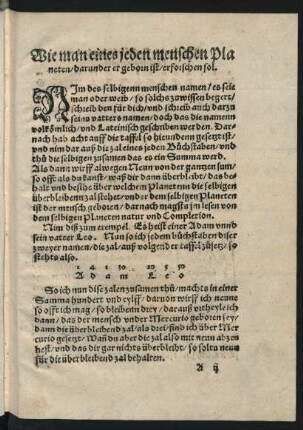 Wie man eines jeden menschen Pla
neten/darunder er geborn ist/erforschen sol.
Nim des selbigenn menschen namen/es seie
man oder weib/so solchs zuwissen begert/
schreib den für dich/vnd schreib auch darzu
seinn vatters namen/doch das die namenn
volkömlich/vnd Lateinisch geschriben werden. Dar
nach hab acht auff die taffel so hieundenn gesetzt ist/
vnd nim dar auß die zal eines jeden Büchstaben/vnd
thů die selbigen zusamen das es ein Summa werd.
Als dann wirff alwegen Neun von der gantzen sum/
so offt als du kanst/was dir dann überbleibt/das be-
halt vnd besihe über welchen Planeten die selbigen
überbleibenn zal stehet/vnder dem selbigen Planeten
ist der mensch geborn/darnach magstu jm lesen von
dem selbigen Planeten natur vnd Complexion.
Nim diß zum exempel. Es heist einer Adam vnnd
sein vater Leo. Nun so ich jedem bůchstaben diser
zweyer namen/die zal/auß volgender taffel zůsetz/so
stehts also.
A d a m L e o
So ich nun dise zalen zusamen thů/machts in einer
Summa hundert vnd eylff/daruon wirff ich neune
so offt ich mag/so bleibenn drey/darauß vrtheyle ich
dann/das der mensch vnder Mercurio geboren sey/
dann die überbleibend zal/als drei/sind ich über Mer
curio gesetzt/Wan du aber die zal also mit neun abzeu
hest/vnd das dir gar nichts überbleibt/so soltu neun
für die überbleibend zal behalten.
A ij